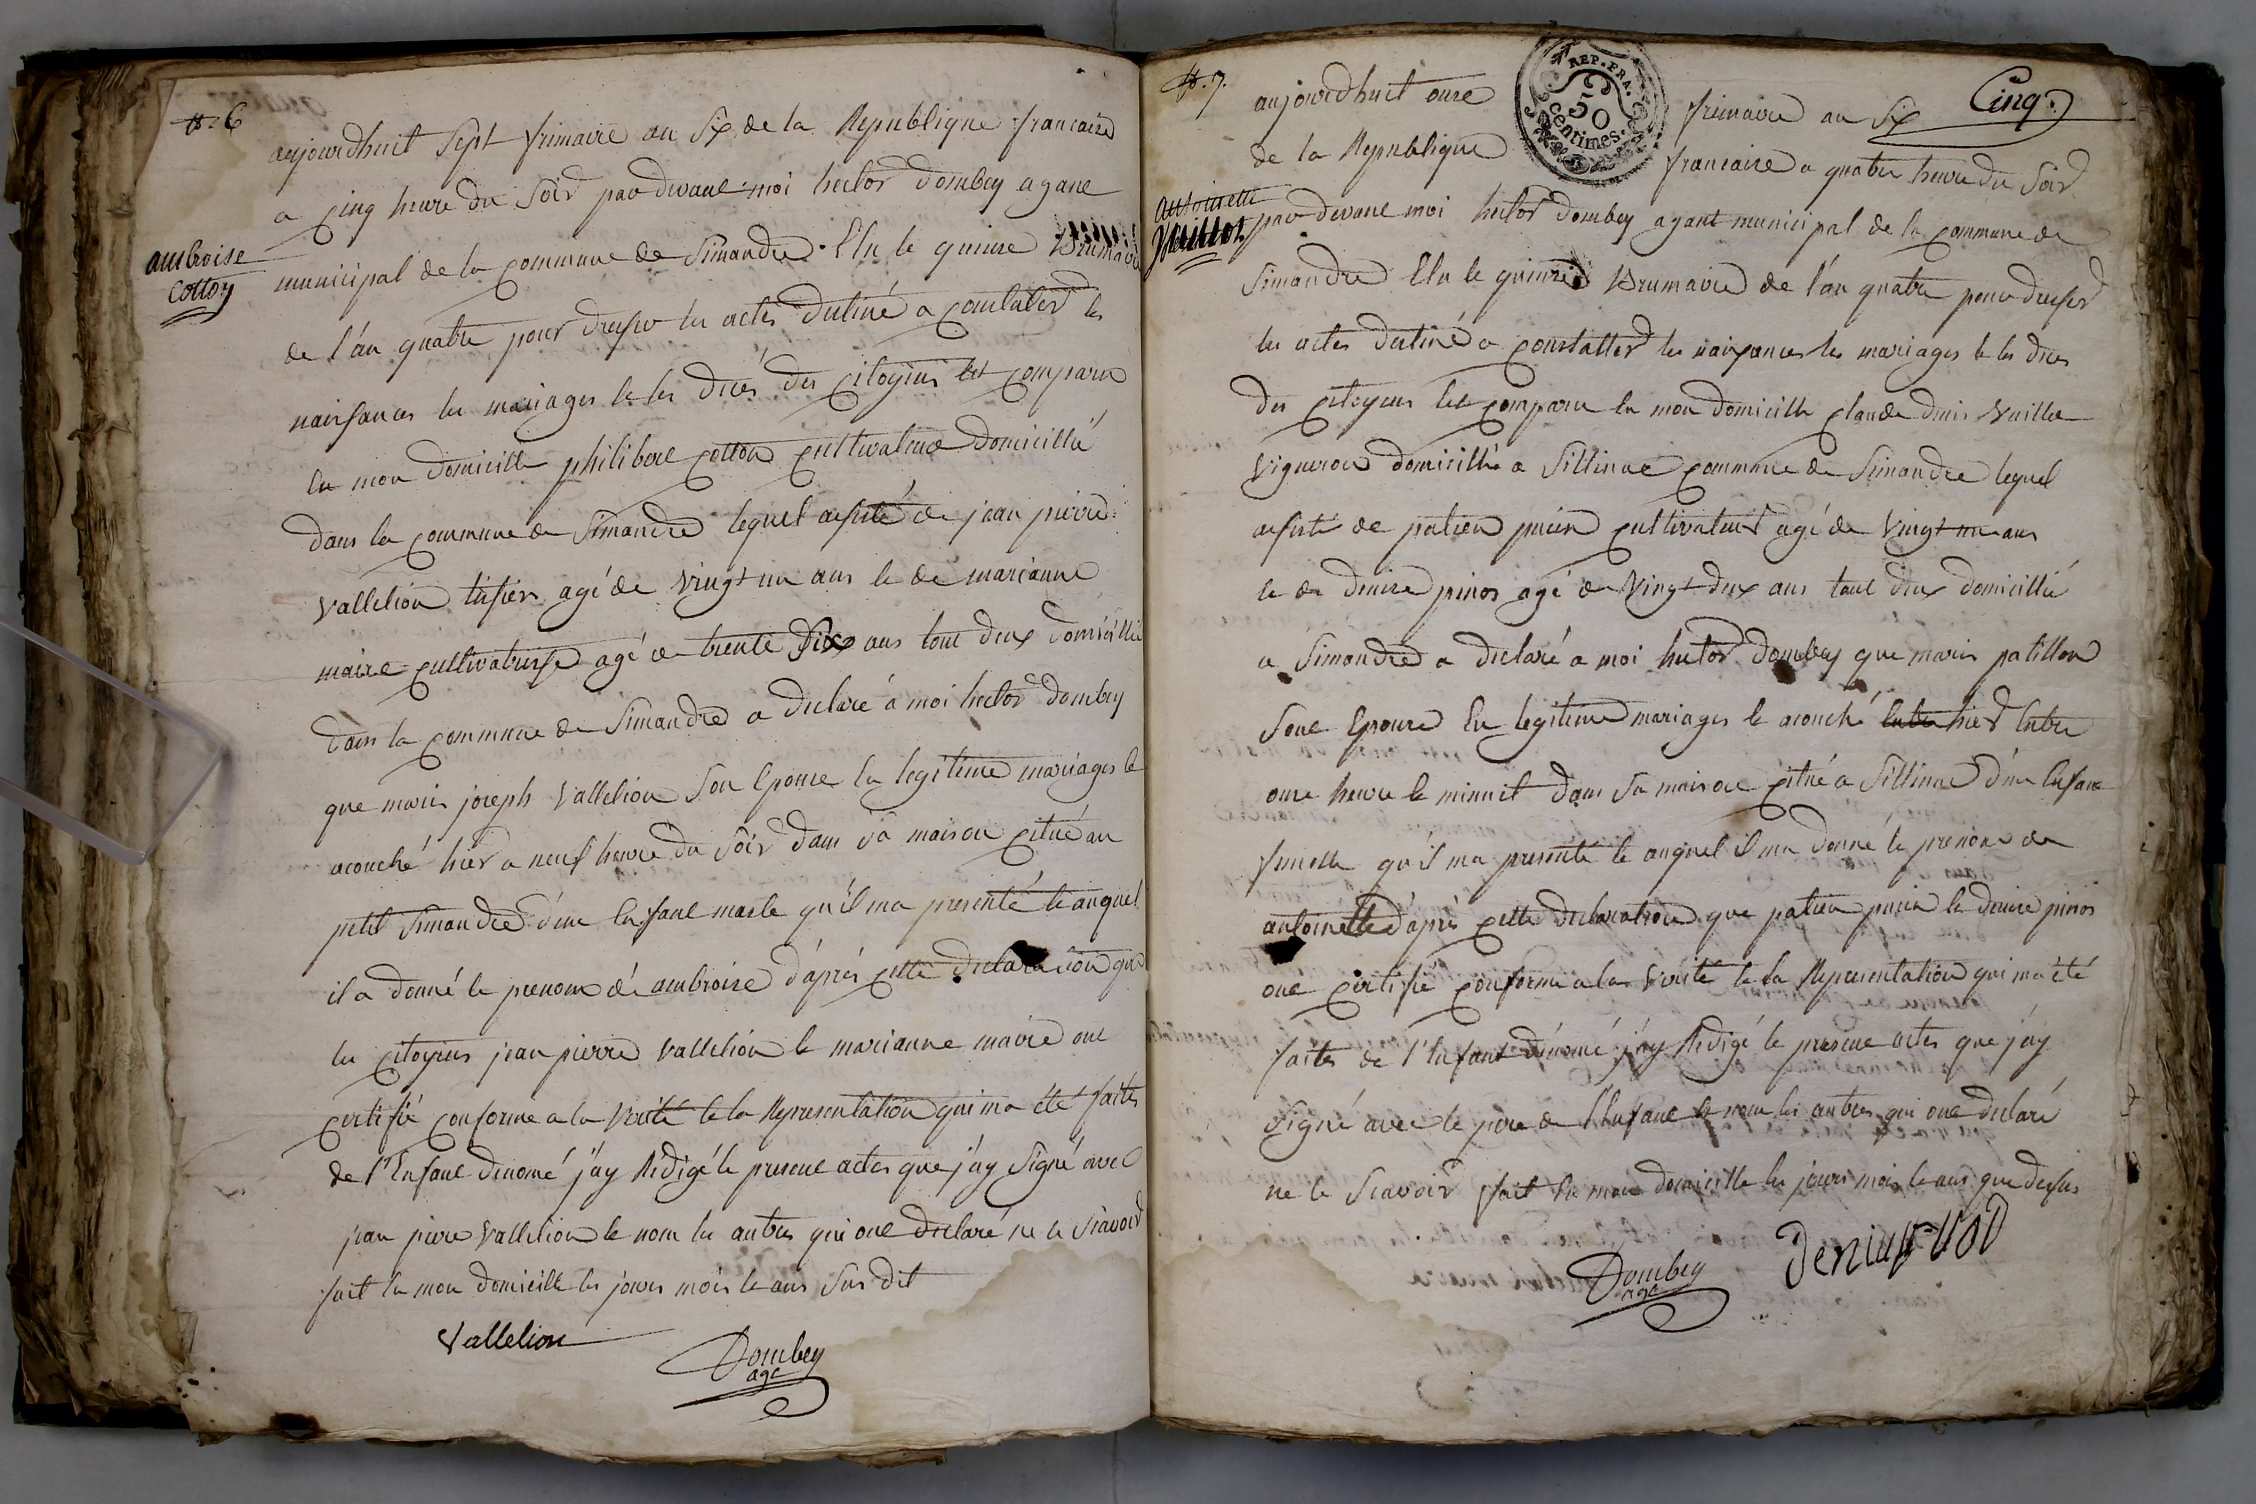 #. 6
aujourdhuit Sept frimaire an Six de la Republique francaire
a cinq heure du Soir par devant moi hector dombey agant
ambroise
cotton
municipal de la commune de Simandre Elu le quinze Brumaire
de l'an quatre pour dresser les actes destiné a constater les
naissances les mariages et les decés des citoyens est comparu
en mon domicille philibert cotton cultivateur domicillié
dans la commune de Simandre lequel assisté de jean pierre
Vallelion tissier agé de vingt un ans et de marianne
maire cultivatrisse agé de trente Six ans tout deux domicillié
dans la commune de Simandre a declaré a moi hector dombey
que marie joseph Vallelion Son Epouse en legitime mariages et
acouché hier a neuf heure du Soir dans sa maison citué au
petit Simandre d'un Enfant masle qu'il ma presenté et auquel
il a donné le prenom de ambroise d'aprés cette declaration que
les citoyens jean pierre Vallelion et marianne maire ont
certifié conforme a la verité et la Representation qui ma été faites
de l'Enfant denomé j'ay Redigé le present actes que j'ay Signé avec
jean pierre Vallelion et non les autres qui ont declaré ne le Scavoir
fait en mon domicille les jours mois et ans Sus dit
Vallelion
Dombey
agt
#. 7.
REP. FRA.
50
Centimes.
Cinq.
aujourdhuit onze frimaire an Six
de la Republique francaire a quatre heure du Soir
antoinette
Vuillot
par devant moi hector dombey agant municipal de la commune de
Simandre Elu le quinze Brumaire de l'an quatre pour dresser
les actes destiné a constatter les naissances les mariages et les deces
des citoyens est comparu en mon domicille claude denis Vuillot
Vigneron domicillié a Sillinac commune de Simandre lequel
assisté de patien cultivateur agé de Vingt un ans
et de denise pinos agé de Vingt deux ans tout deux domicillié
a Simandre a declaré a moi hector dombey que marie patillon
Sont Epouse En legitime mariages et acouché entre hier Entre
onze heure et minuit dans Sa maison citué a Sillinac d'un Enfant
femelle qu'il ma presenté et auquel il ma donné le prenom de
antoinette d'aprés cette declaration que patien et denise pinos
ont certifié conforme a la verité et la Representation qui ma été
faites de l'Enfant denomé j'ay Redigé le present actes que j'ay
Signé avec le pere de l'Enfant et non les autres qui ont declaré
ne le Scavoir fait En mon domicille les jours mois et ans que dessus
Dombey
agt